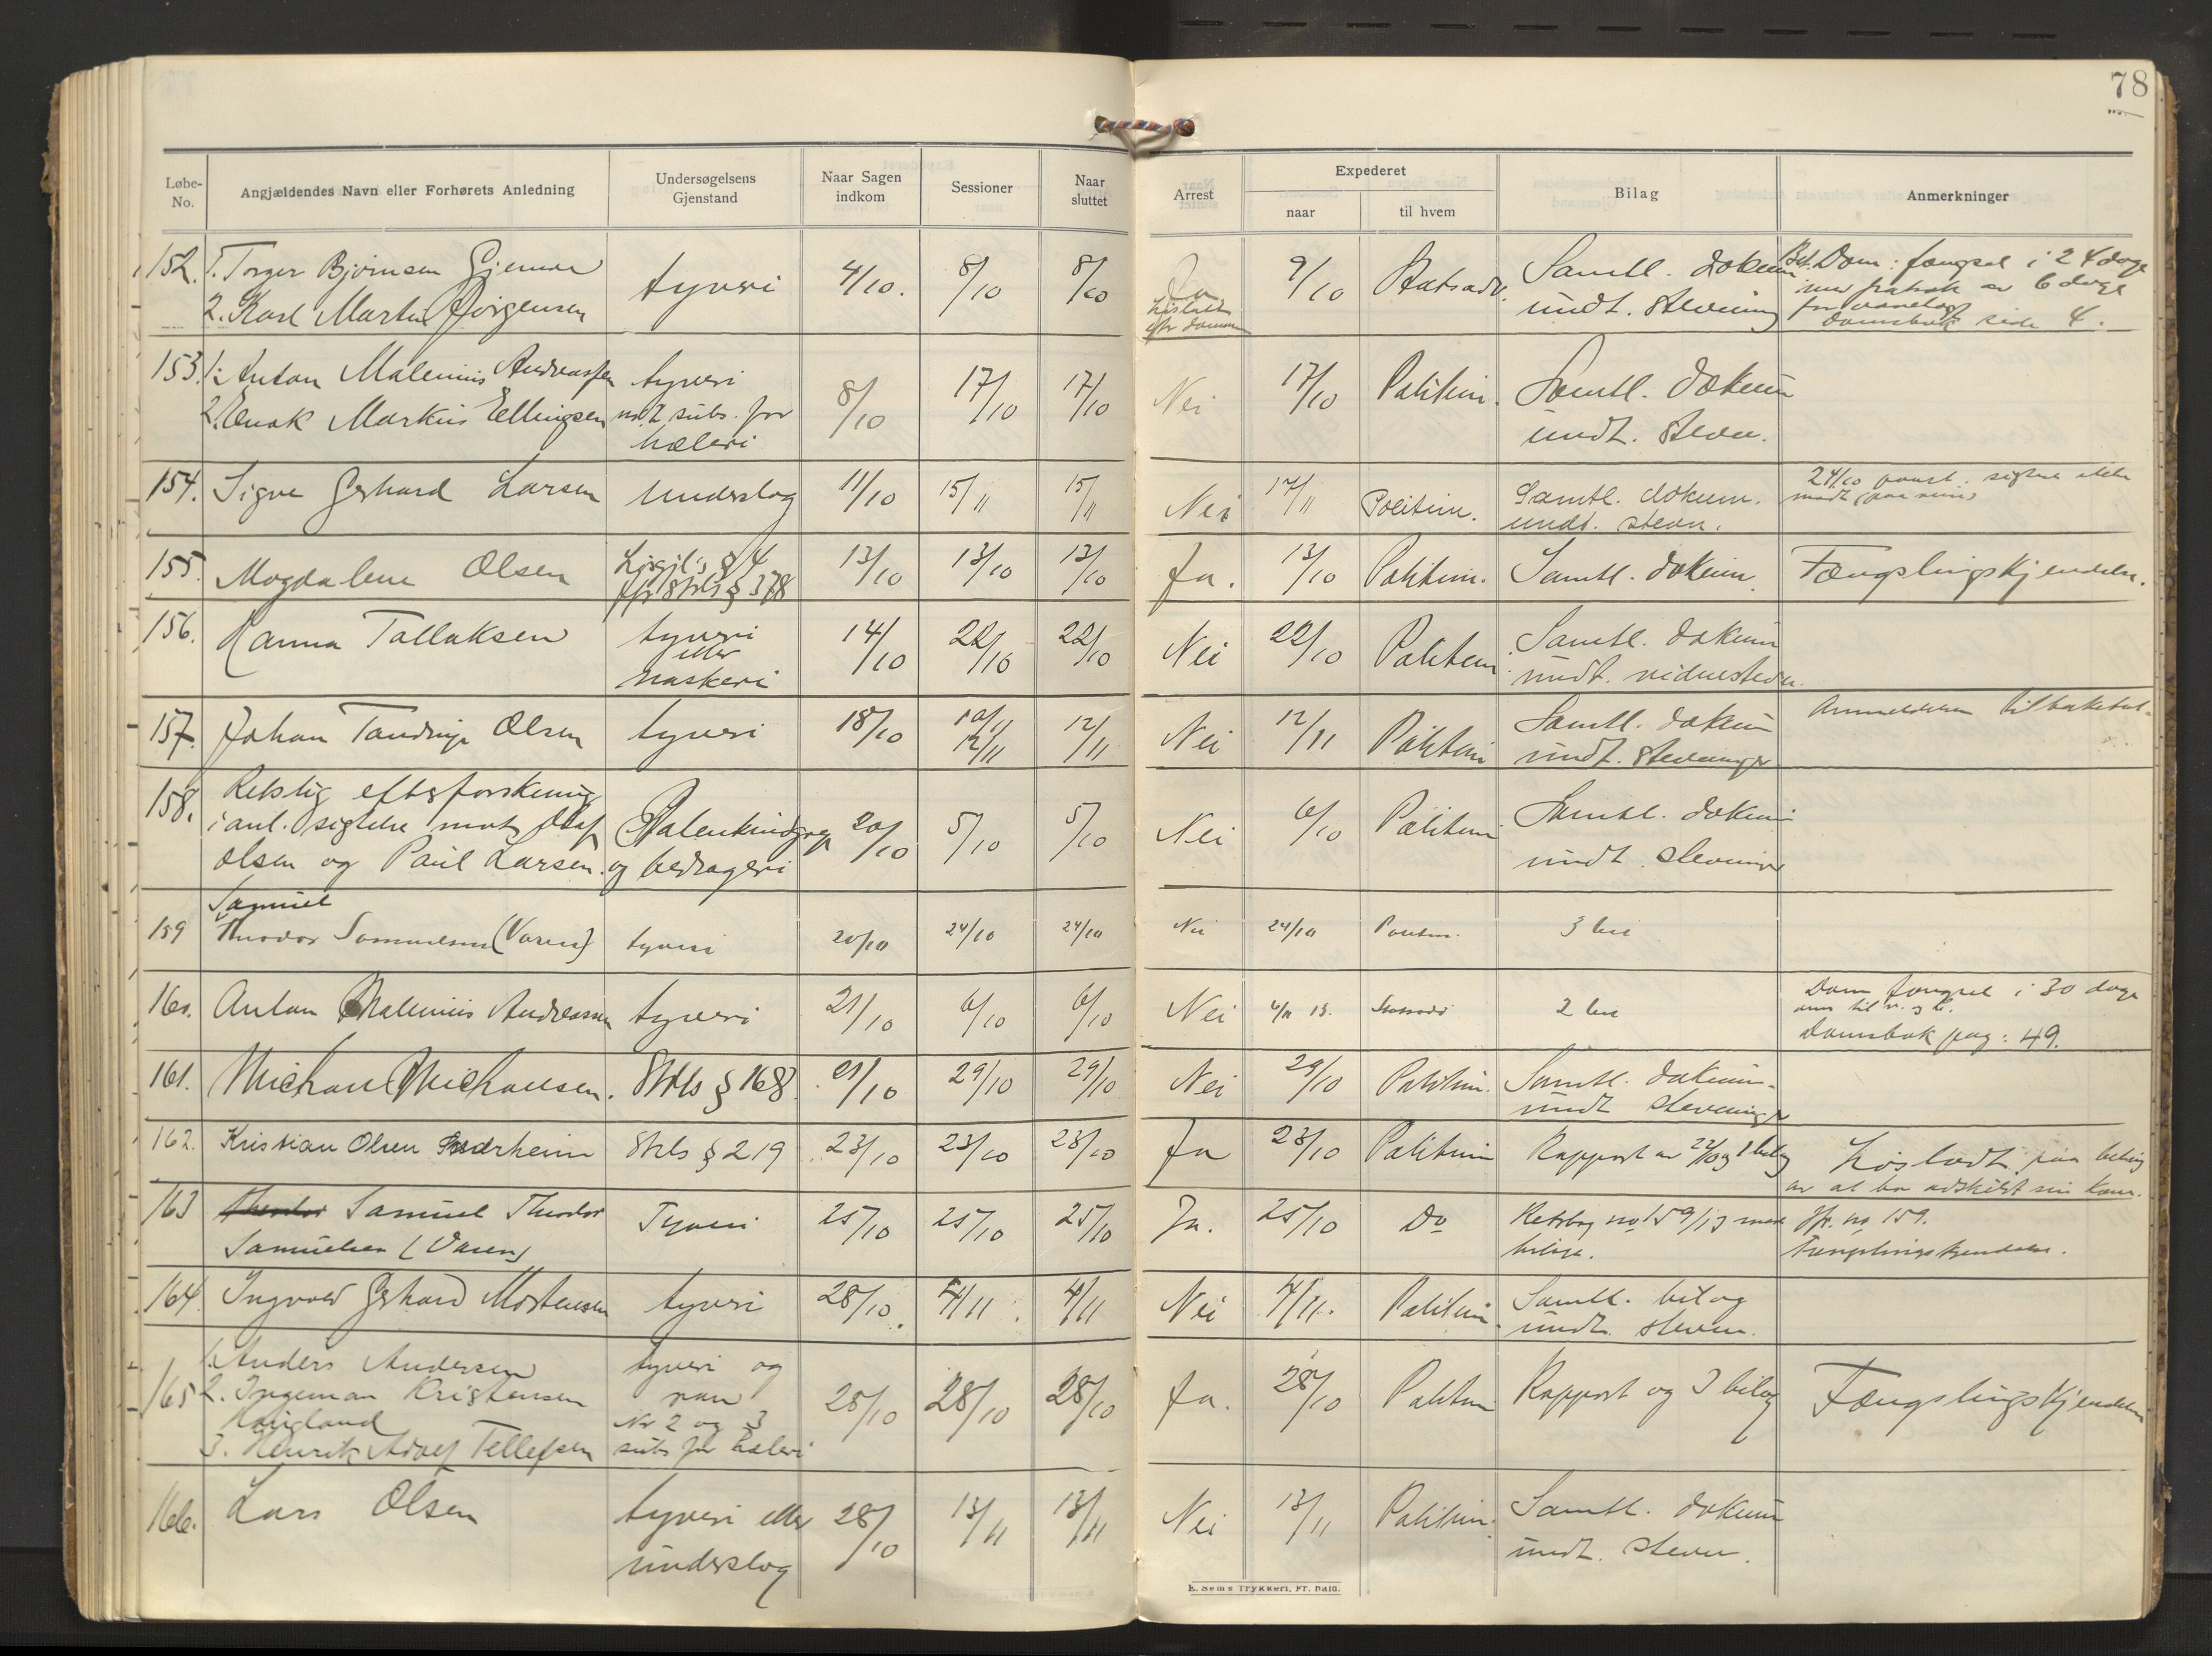 78
Løbe-No. Angjældendes Navn eller Forhørets Anledning Undersøgelsens Gjenstand Naar Sagen indkom Sessioner Naar sluttet Arrest Expederet naar til hvem Bilag Anmerkninger
152. 1. Torger Bjørnsen Gjemre tyveri 4/10. 8/10 8/10 Ja 9/10 Statsadv. Samtl. dokum Bet. Dom: fængsel i 24 dage
2. Karl Martin Jørgensen Løslatt efter dommen undt. stevning med fradrak av 6 dage
for varetægt
Domsbok side 4.
153. 1. Anton Malenius Andreassen tyveri 8/10 17/10 17/10 Nei 17/10 Politim. Samtl. dokum
2. Enok Markus Ellingsen nr. 2 subs. for hæleri undt. stevn.
154. Sigve Gerhard Larsen Underslag 11/10 15/11 15/11 Nei 17/11 Politim. Samtl. dokum. 24/10 siktede ikke
undt. stevn. mødt
155. Magdalene Olsen Løsgjl's § 4 13/10 13/10 13/10 Ja. 13/10 Politim. Samtl. dokum. Fængslingskjendelse.
jfr strls § 378
156. Hanna Tallaksen tyveri eller naskeri 14/10 22/10 22/10 Nei 22/10 Politim Samtl. dokum
undt. vidnestevn.
157. Johan Tandrup Olsen tyveri 18/10 10/11 12/11 12/11 Nei 12/11 Politim Samtl. dokum Anmeldelsen tilbakekal.
undt. stevninger
158. Retslig efterforskning
i anl. sigtelse mot Olaf Falskmyndsag 20/10 5/10 5/10 Nei 6/10 Politim Samtl. dokum
Olsen og Paul Larsen. og bedrageri undt. stevninger
Samuel
159 Theodor Samuelsen (Varen) tyveri 20/10 24/10 24/10 Nei 24/10 Politim. 3 bil
160. Anton Malenius Andreassen tyveri 21/10 6/10 6/10 Nei 6/11 13. Statsadv 2 bil Dom fængsel i 30 dage
Domsbok pag: 49.
161. Michael Michaelsen. Strls § 168 21/10 29/10 29/10 Nei 29/10 Politim. Samtl. dokum.
undt stevninger
162. Kristian Olsen Søderheim Strls § 219 23/10 23/10 23/10 Ja 23/10 Politim Rapport av 22/10 og 1 bilag Løsladt paa beting
av at bo adskilt sin kone.
163 Samuel Theodor Tyveri 25/10 25/10 25/10 Ja. 25/10 Do Retsbog no 159/13 med Jfr. no 159.
Samuelsen (Varen) bilage. Fængslingskjendelse.
164. Ingvald Gerhard Mortensen tyveri 28/10. 4/11. 4/11 Nei 4/11. Politim. Samtl. bilag
undt. stevn.
165 1. Anders Andersen tyveri og 28/10 28/10 28/10 Ja. 28/10 Politim Rapport og 3 bilag Fængslingskjendelse
2. Ingeman Kristensen ran
Haugland Nr 2 og 3
3. Henrik Adolf Tellefsen subs for hæleri
166. Lars Olsen tyveri eller 28/10 13/11 13/11 Nei 13/11 Politim. Samtl. dokum
underslag undt. stevn.
E. Sems Trykkeri, Fr.hald.